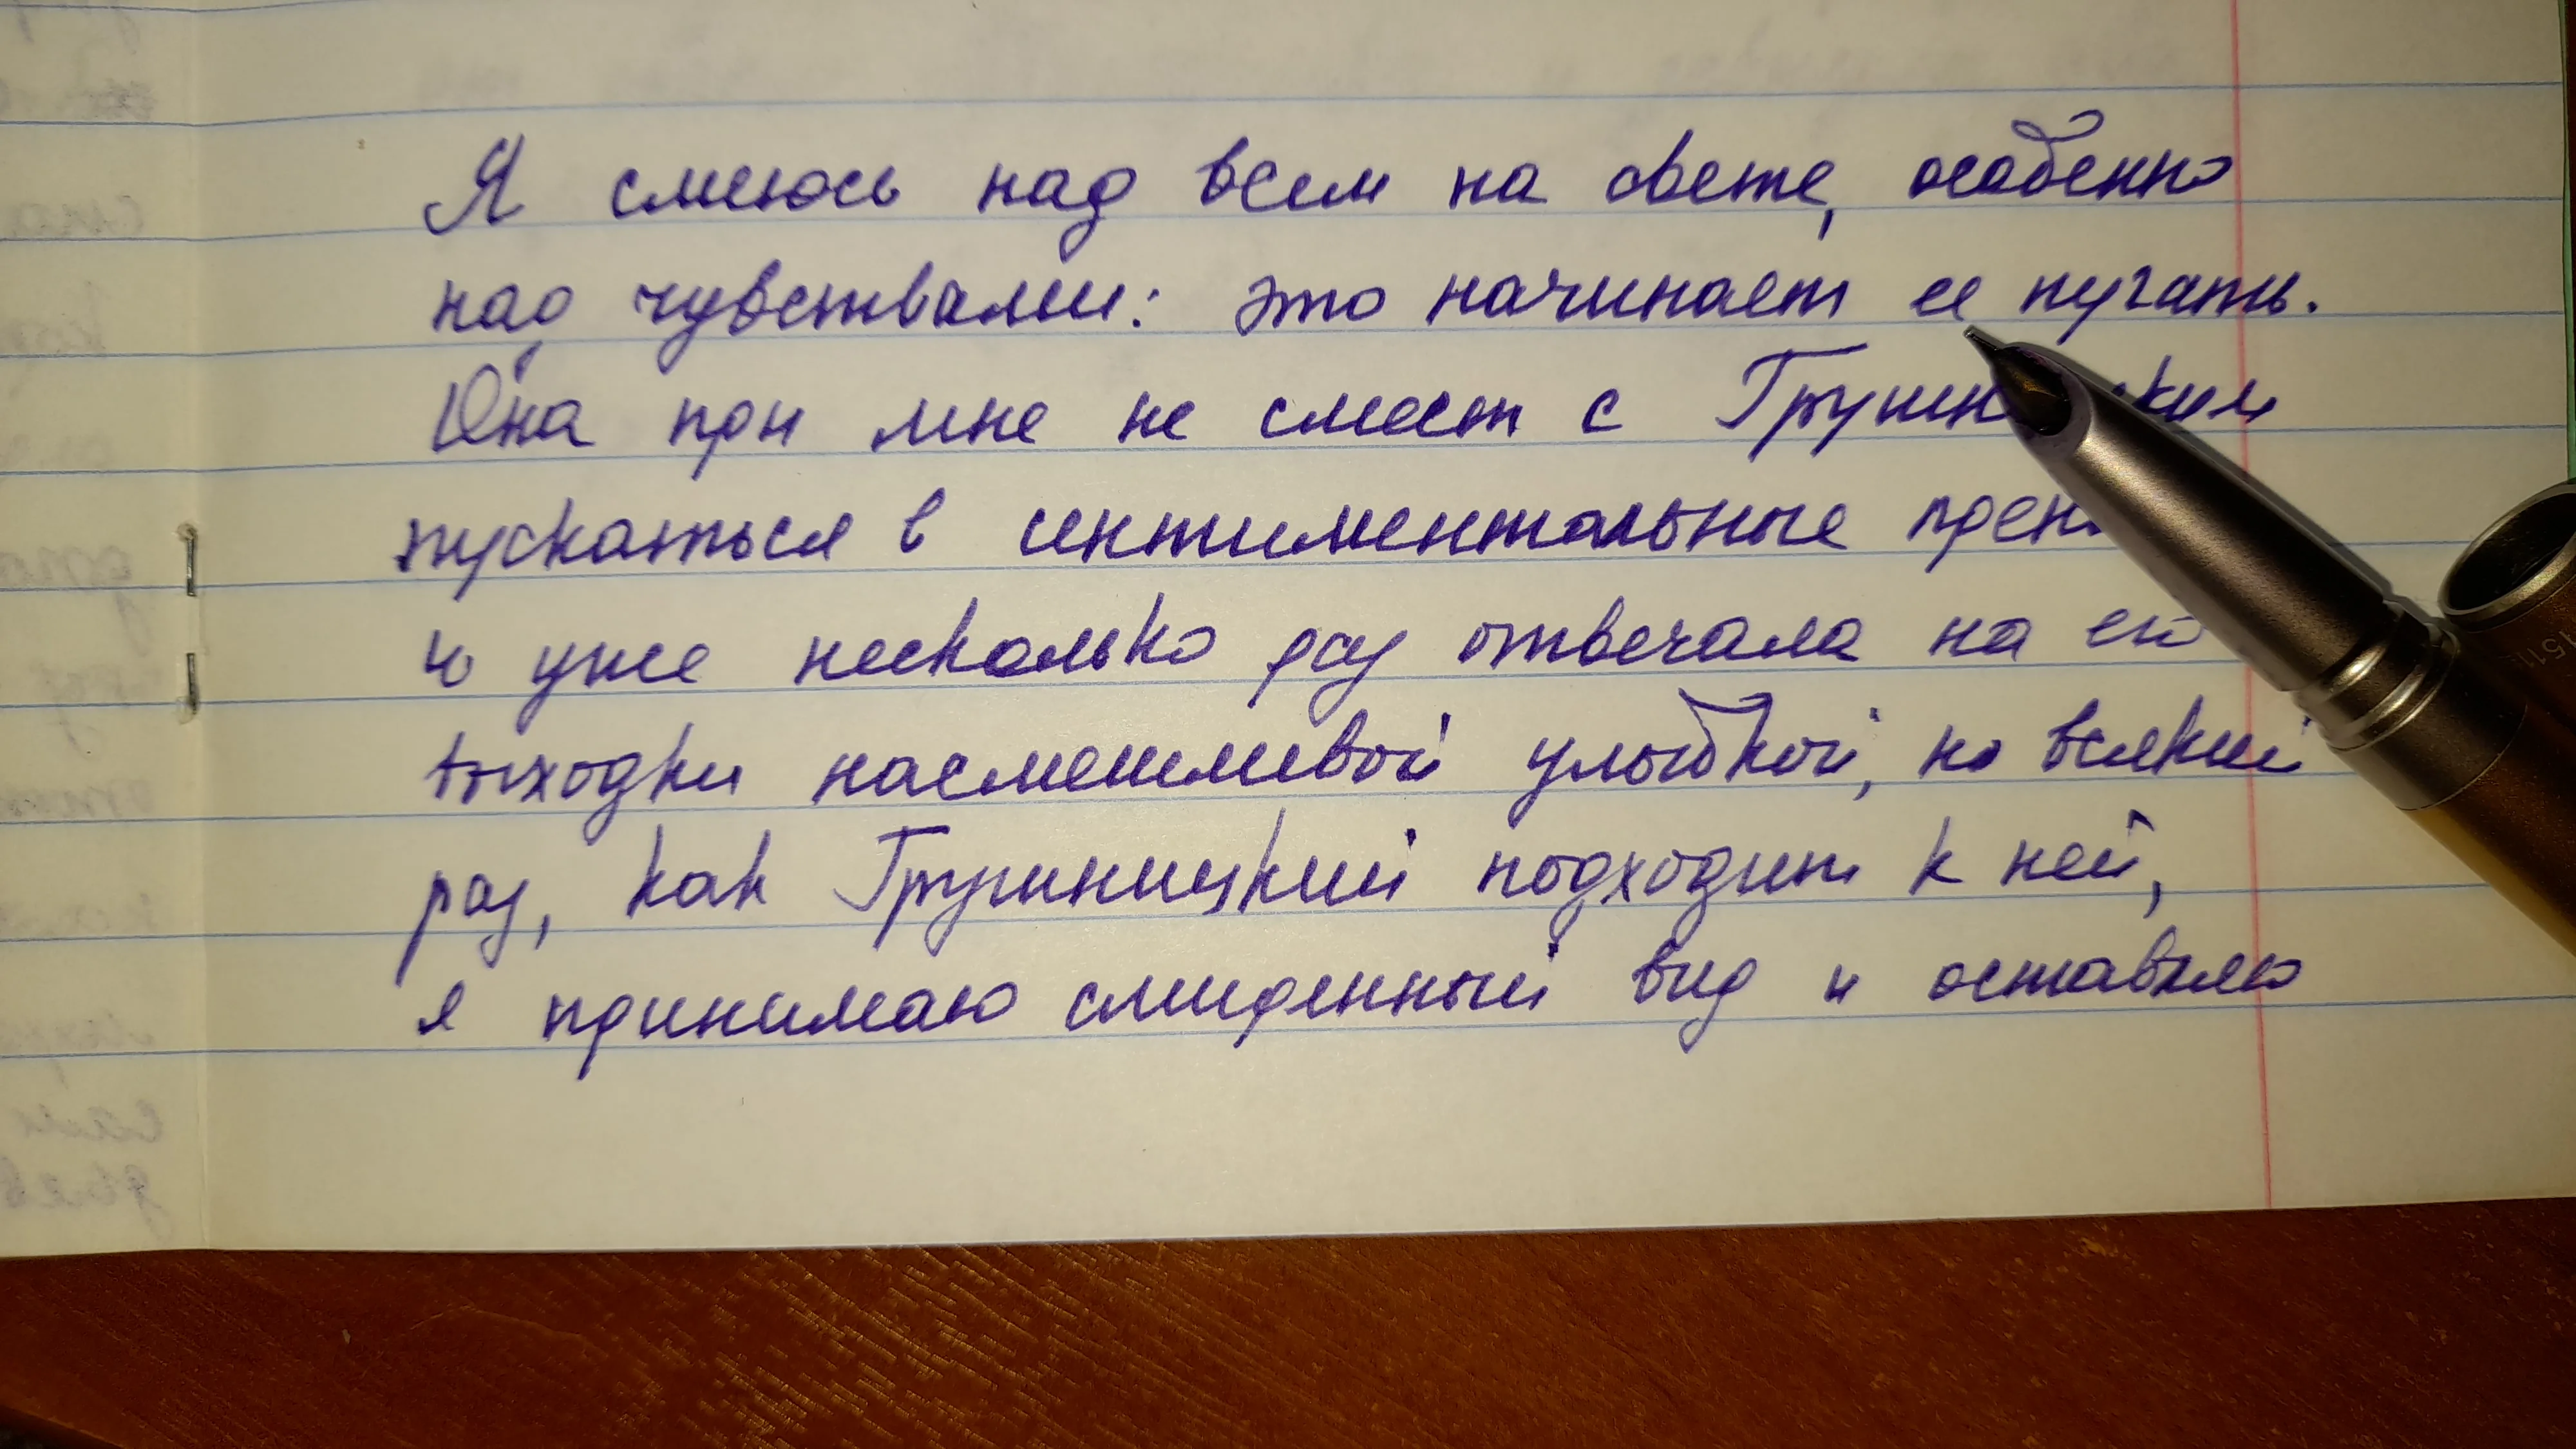 Я смеюсь над всем на свете, особенно
над чувствами: это начинает ее пугать.
Она при мне не смеет с
пускаться в сентиментальные
и уже несколько раз отвечала на его
выходки насмешливой улыбкой, но всякий
раз, как Грушницкий подходит к ней,
я принимаю смиренный вид и оставляю